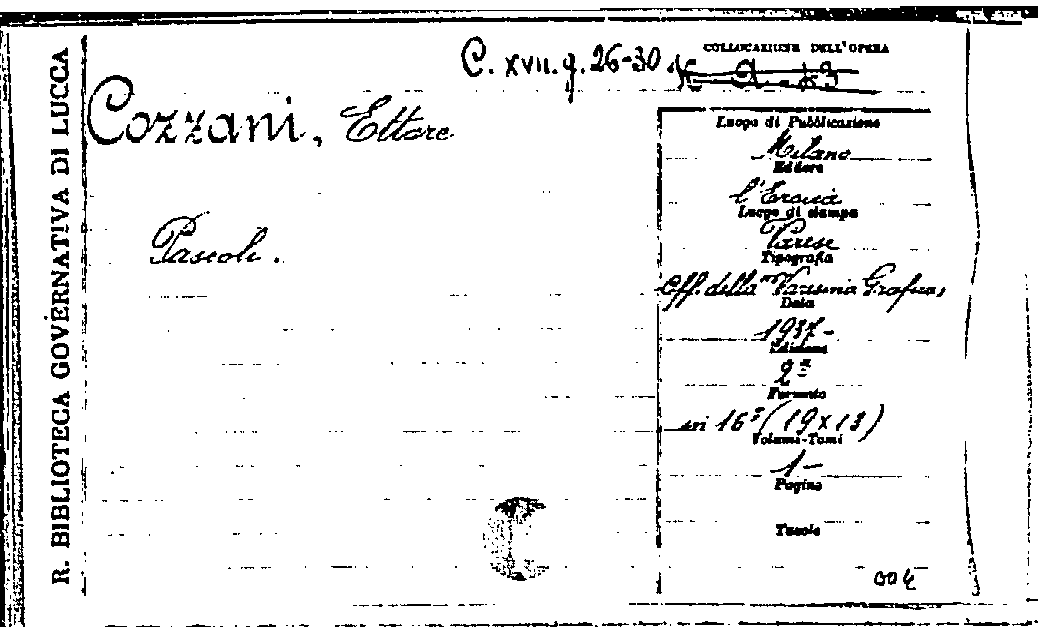 R. BIBLIOTECA GOVERNATIVA DI LUCCA
C. XVII. g. 26-30
COLLOCAZIONE DELL'OPERA
Cozzani, Ettore
Pascoli.
Luogo di Pubblicazione
Milano
Editore
l'Eroica
Luogo di stampa
Varese
Tipografia
Off. della "Varesina Grafica"
Data
1937-
Edizione
2ª
Formato
in 16° (19 x 13)
Volumi-Tomi
1-
Pagine
Tavole